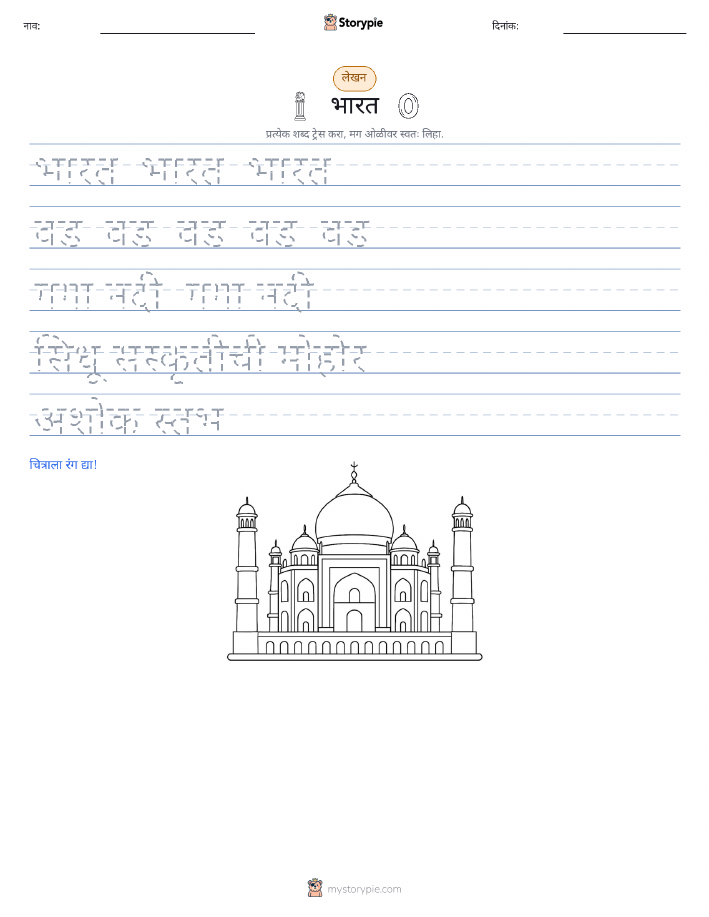 नाव:
Storypie
दिनांक:
लेखन
भारत
प्रत्येक शब्द ट्रेस करा, मग ओळीवर स्वतः लिहा.
भारत भारत भारत
वड वड वड वड वड
गगा नदी गगा नदी
सिधू सस्कृतीची मोहोर
अशोक स्तभ
चित्राला रंग द्या!
mystorypie.com